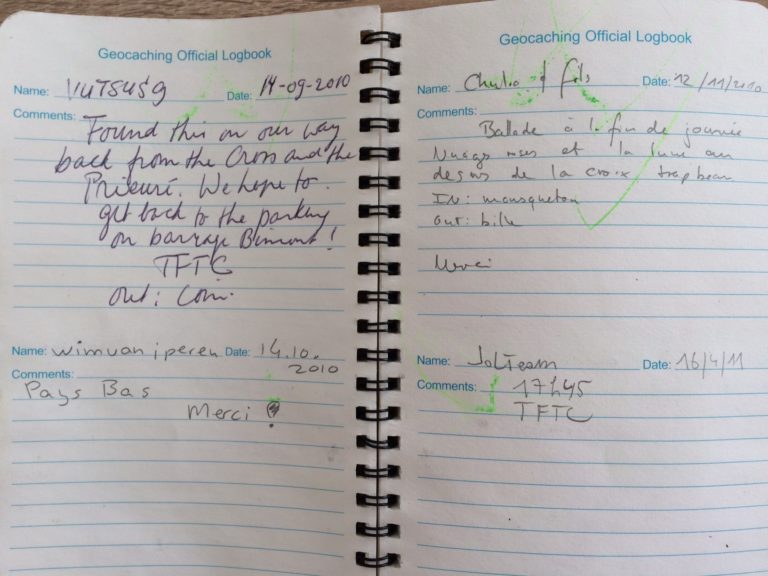 Geocaching Official Logbook
Name: VUTSUSG Date: 14-09-2010
Comments: Found this on our way
back from the Cross and the
Prieuré. We hope to
get back to the parking
on barrage Bimont!
TFTC
out: Coin.
Name: wimvaniperen Date: 14.10.
2010
Comments:
Pays Bas
Merci !
Geocaching Official Logbook
Name: & fils Date: 12/11/2010
Comments:
Ballade à la fin de journée
Nuages roses et la lune au
dessus de la croix trop beau
IN: mousqueton
out: bille
Merci
Name: JolTeam Date: 16/4/11
Comments: 17h45
TFTC